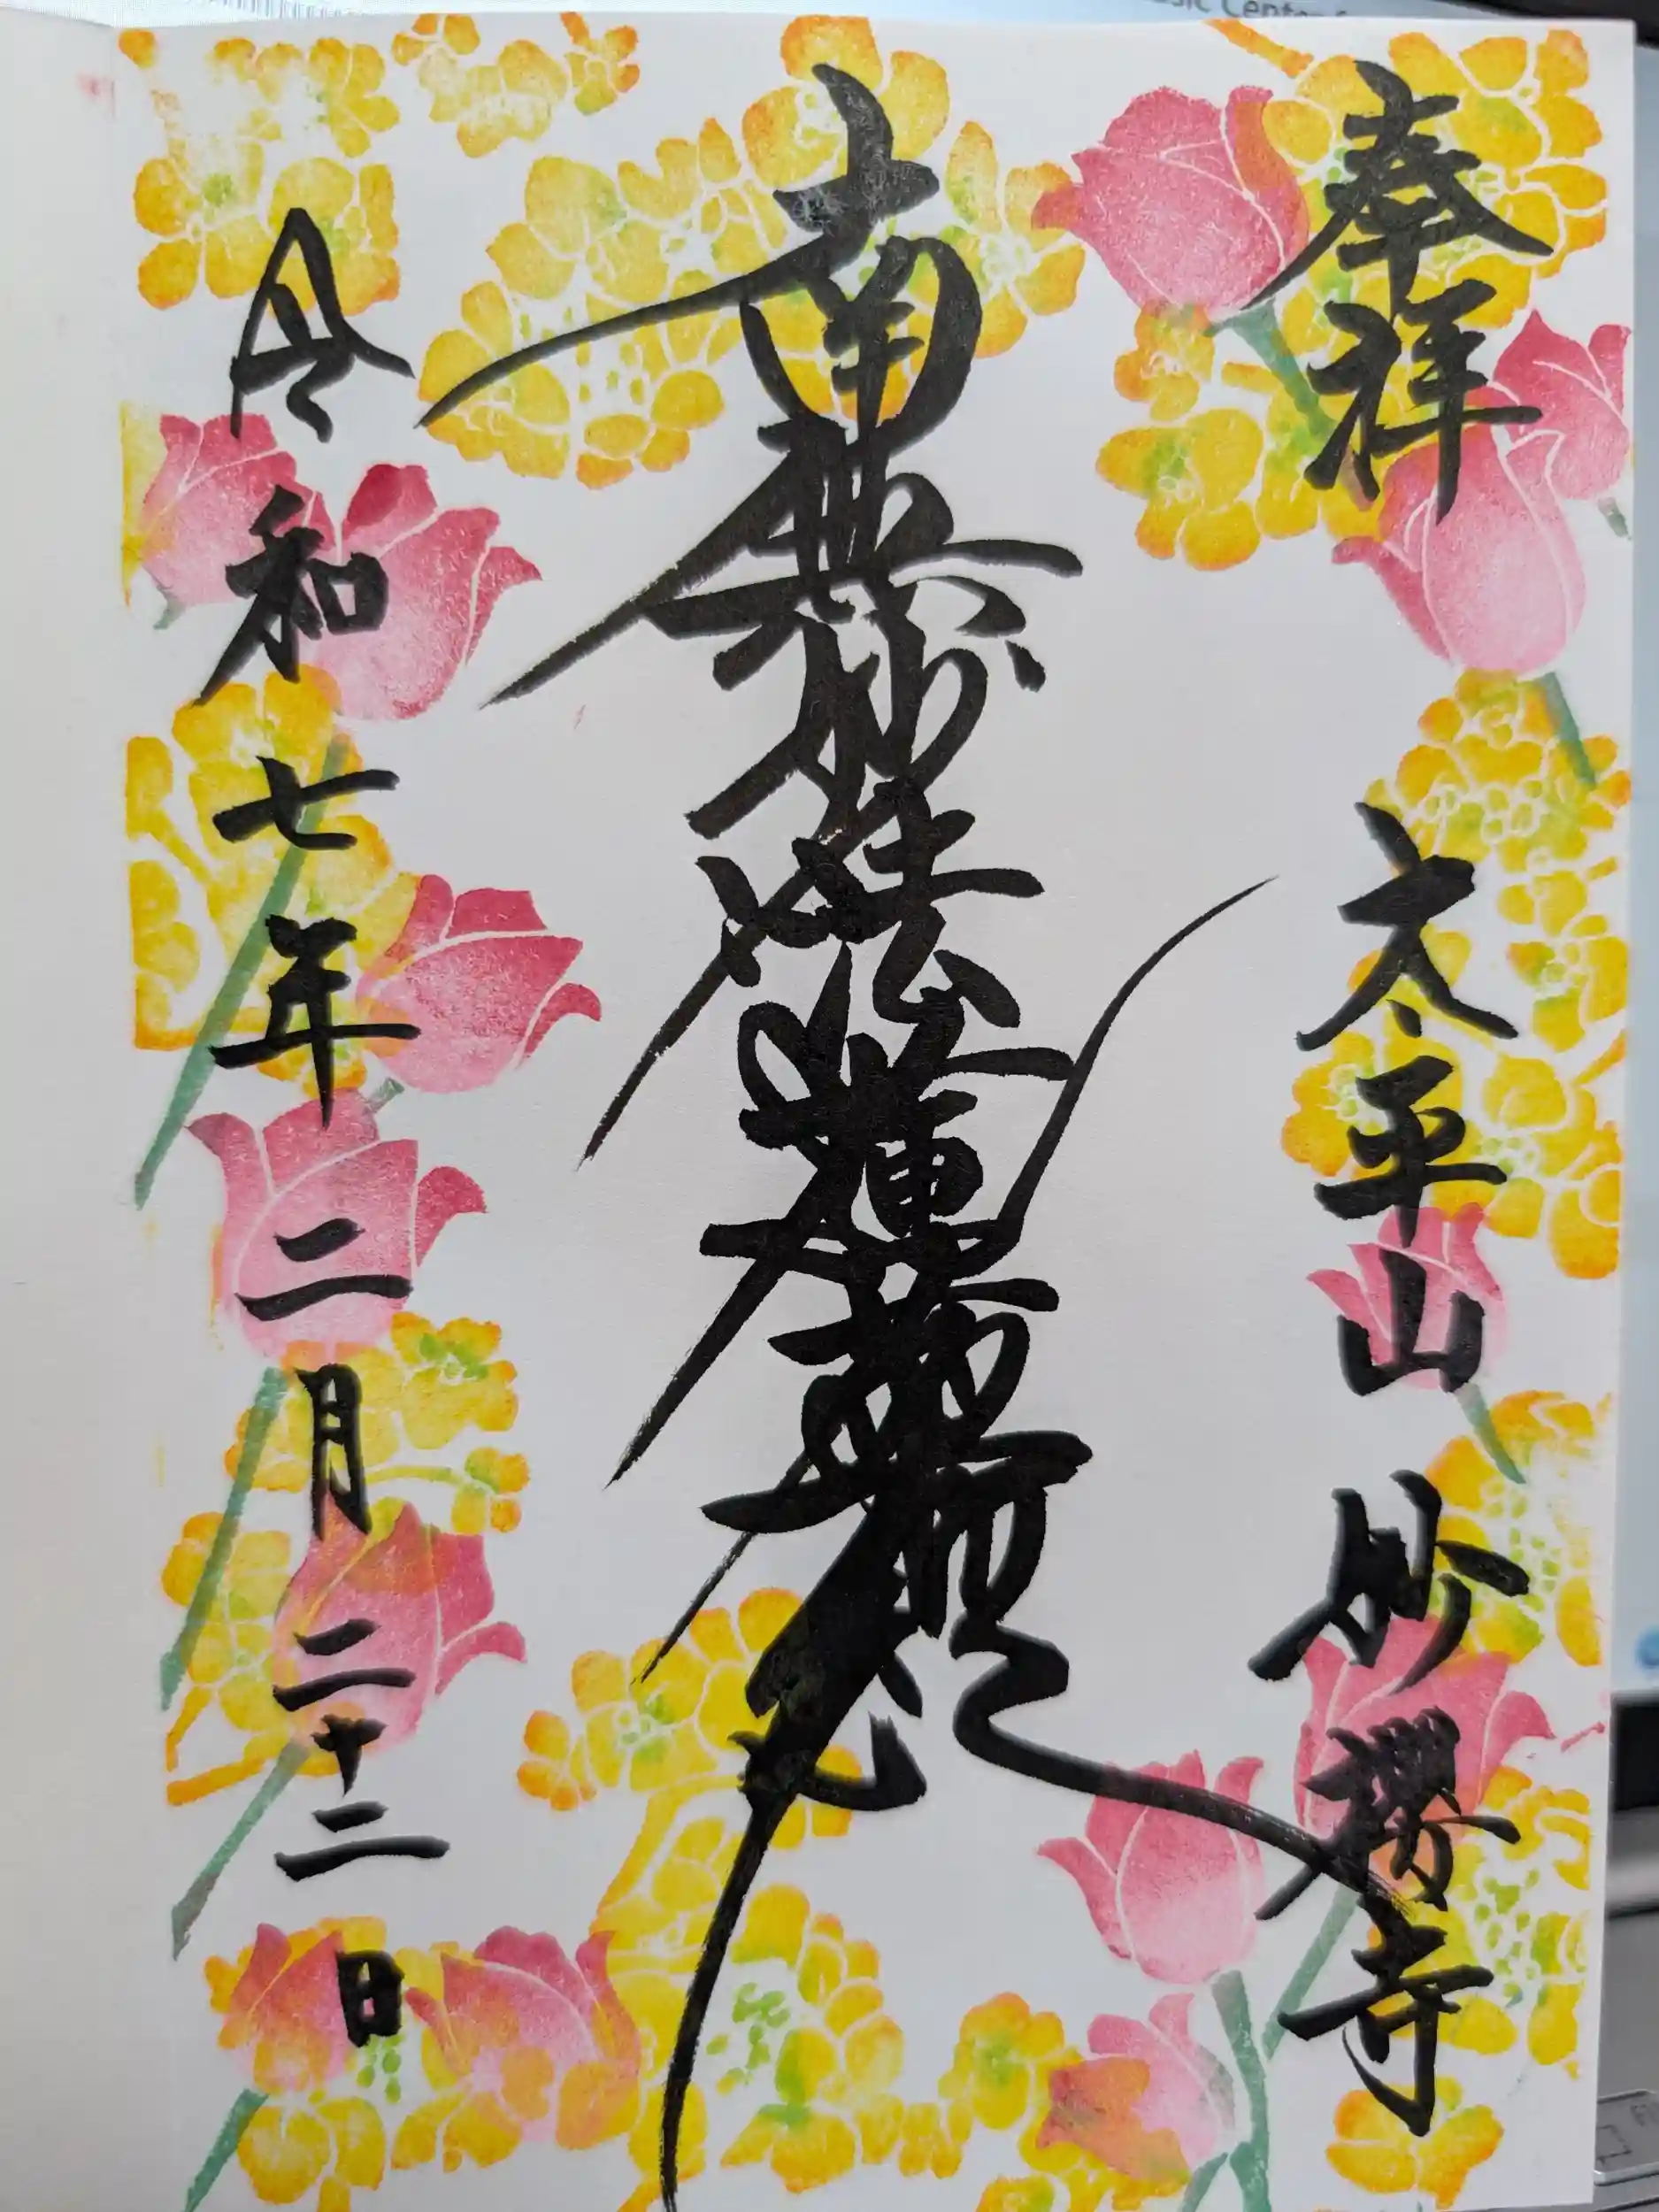 奉拝
太平山 妙櫻寺
南無妙法蓮華経
令和七年二月二十二日